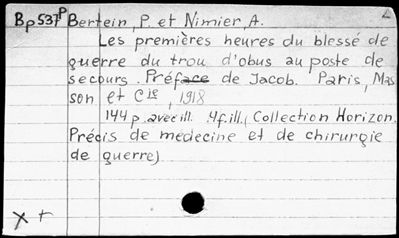 Bp537P Bertein, P. et Nimier, A.
Les premières heures du blessé de
guerre du trou d'obus au poste de
secours. Préface de Jacob. Paris, Mas
son et Cie, 1918
144 p. avec ill. 4f.ill. (Collection Horizon.
Précis de medecine et de chirurgie
de guerre)
x +